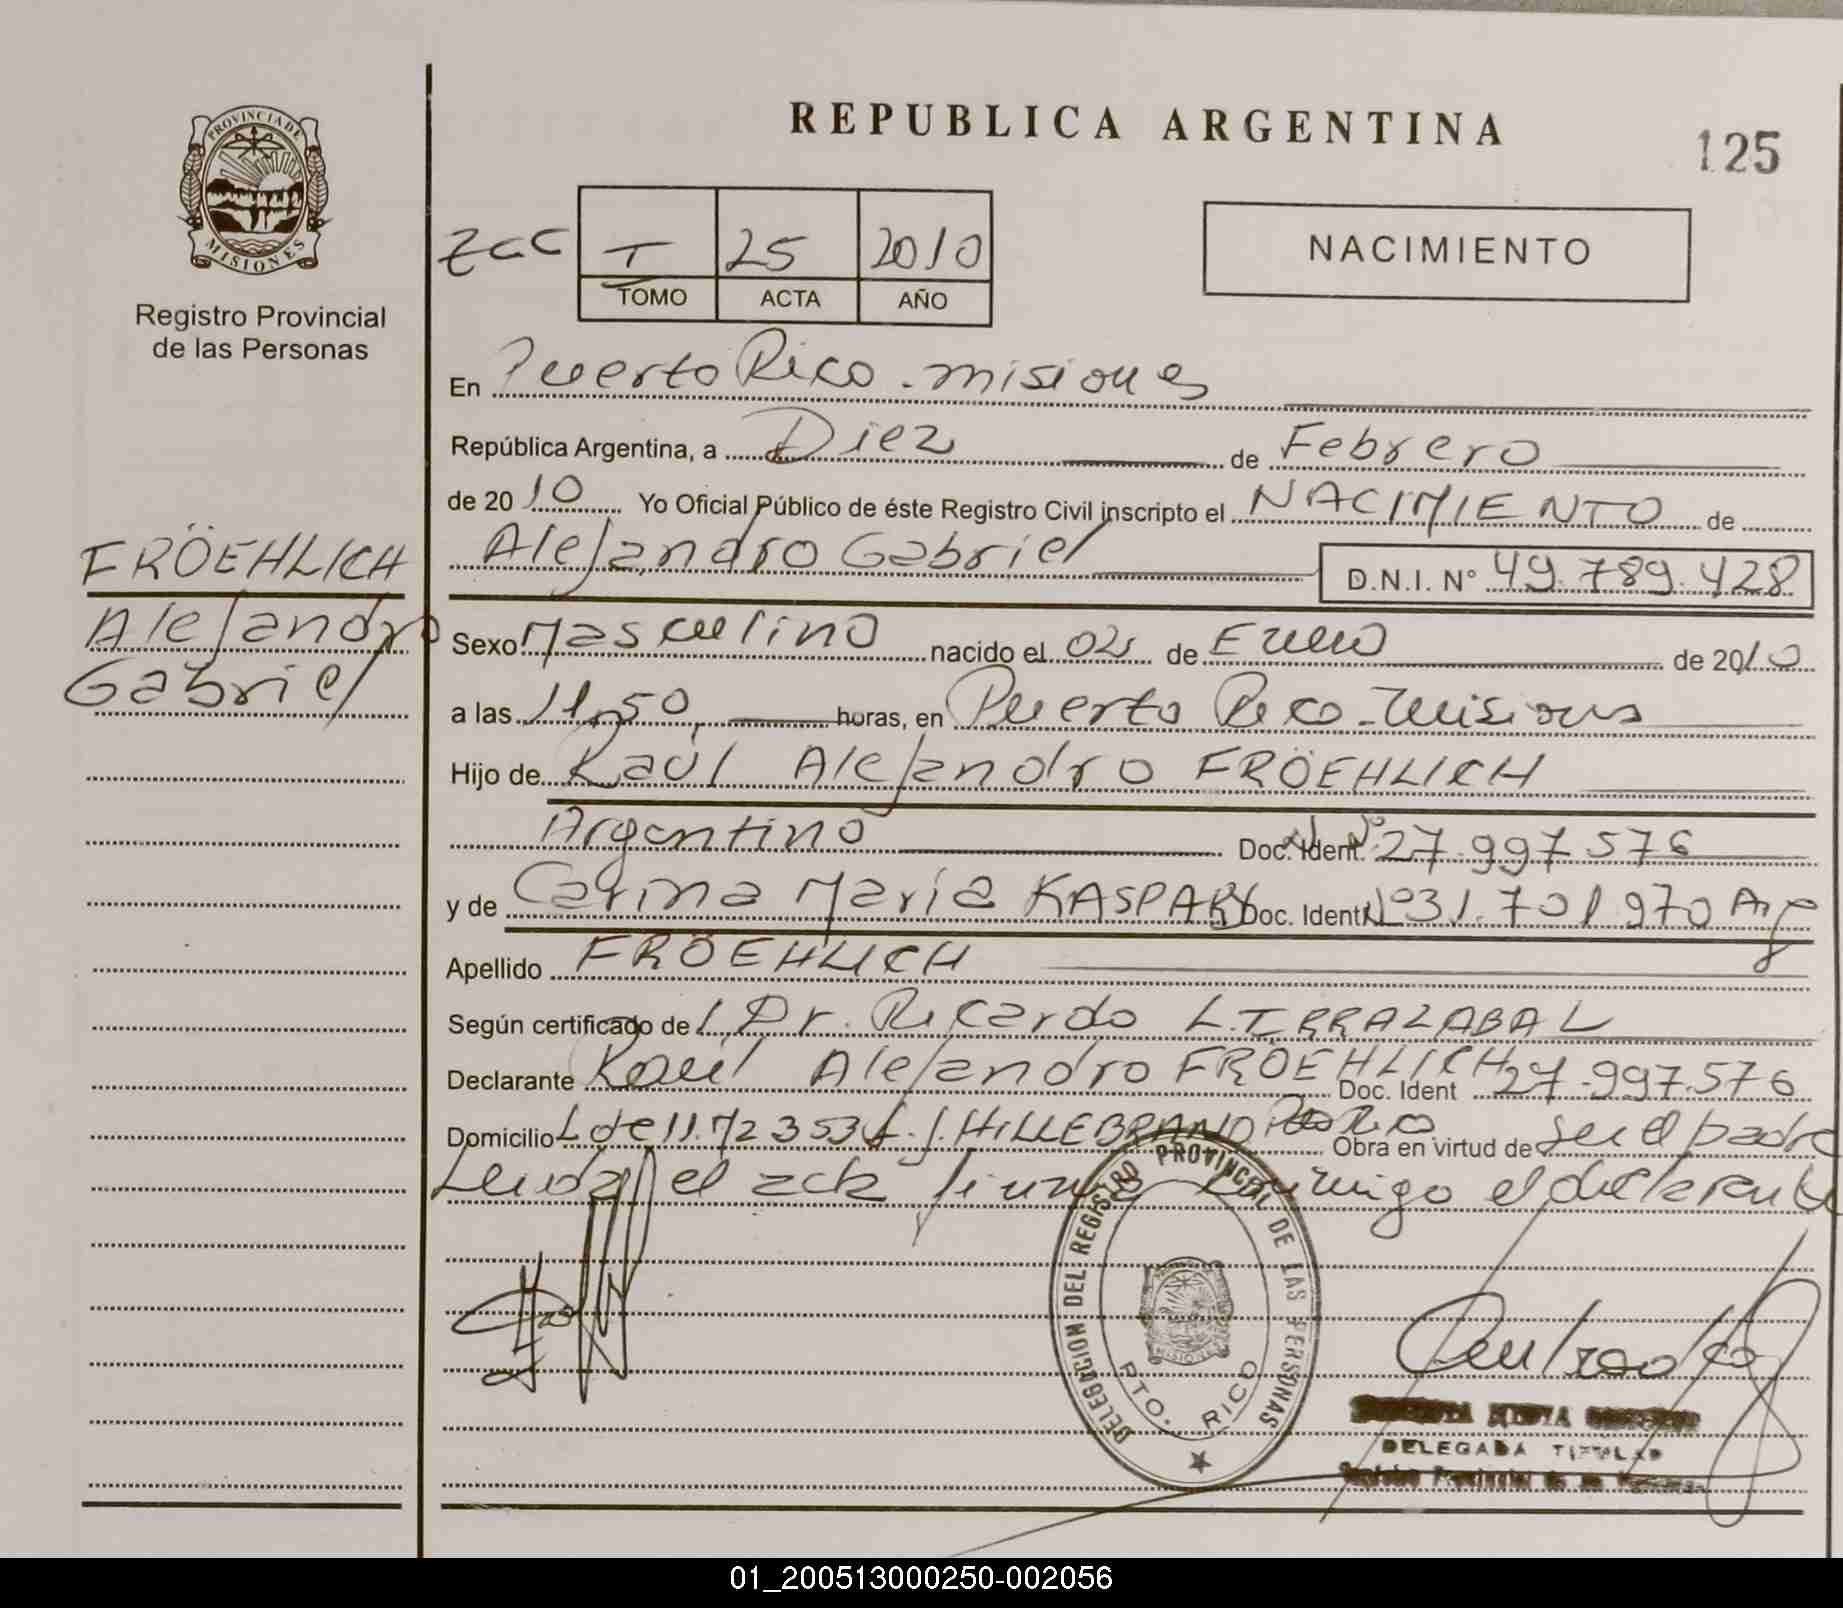 REPUBLICA ARGENTINA
125
PROVINCIA DE
MISIONES
Registro Provincial
de las Personas
T 25 2010
TOMO ACTA AÑO
NACIMIENTO
En Puerto Rico - Misiones
República Argentina, a Diez de Febrero
de 20 10 Yo Oficial Público de éste Registro Civil inscripto el NACIMIENTO de
Alejandro Gabriel D.N.I. N° 49.789.428
FRÖEHLICH
Alejandro
Gabriel
Sexo Masculino nacido el 02 de Enero de 2010
a las 11,50, horas, en Puerto Rico - Misiones
Hijo de Raúl Alejandro FRÖEHLICH
Argentino Doc. Ident. N° 27.997.576
y de Carina María KASPARY Doc. Ident N° 31.701.970 Arg
Apellido FRÖEHLICH
Según certificado del Dr. Ricardo L. IRRAZABAL
Declarante Raúl Alejandro FRÖEHLICH Doc. Ident 27.997.576
Domicilio L de 11.72 353 HILLEBRAND Pto Rico Obra en virtud de ser el padre
Leida el acta firma conmigo el declarante
DELEGACION DEL REGISTRO PROVINCIAL DE LAS PERSONAS
MISIONES
PTO. RICO
DELEGADA TITULAR
Registro Provincial de las Personas
01_200513000250-002056